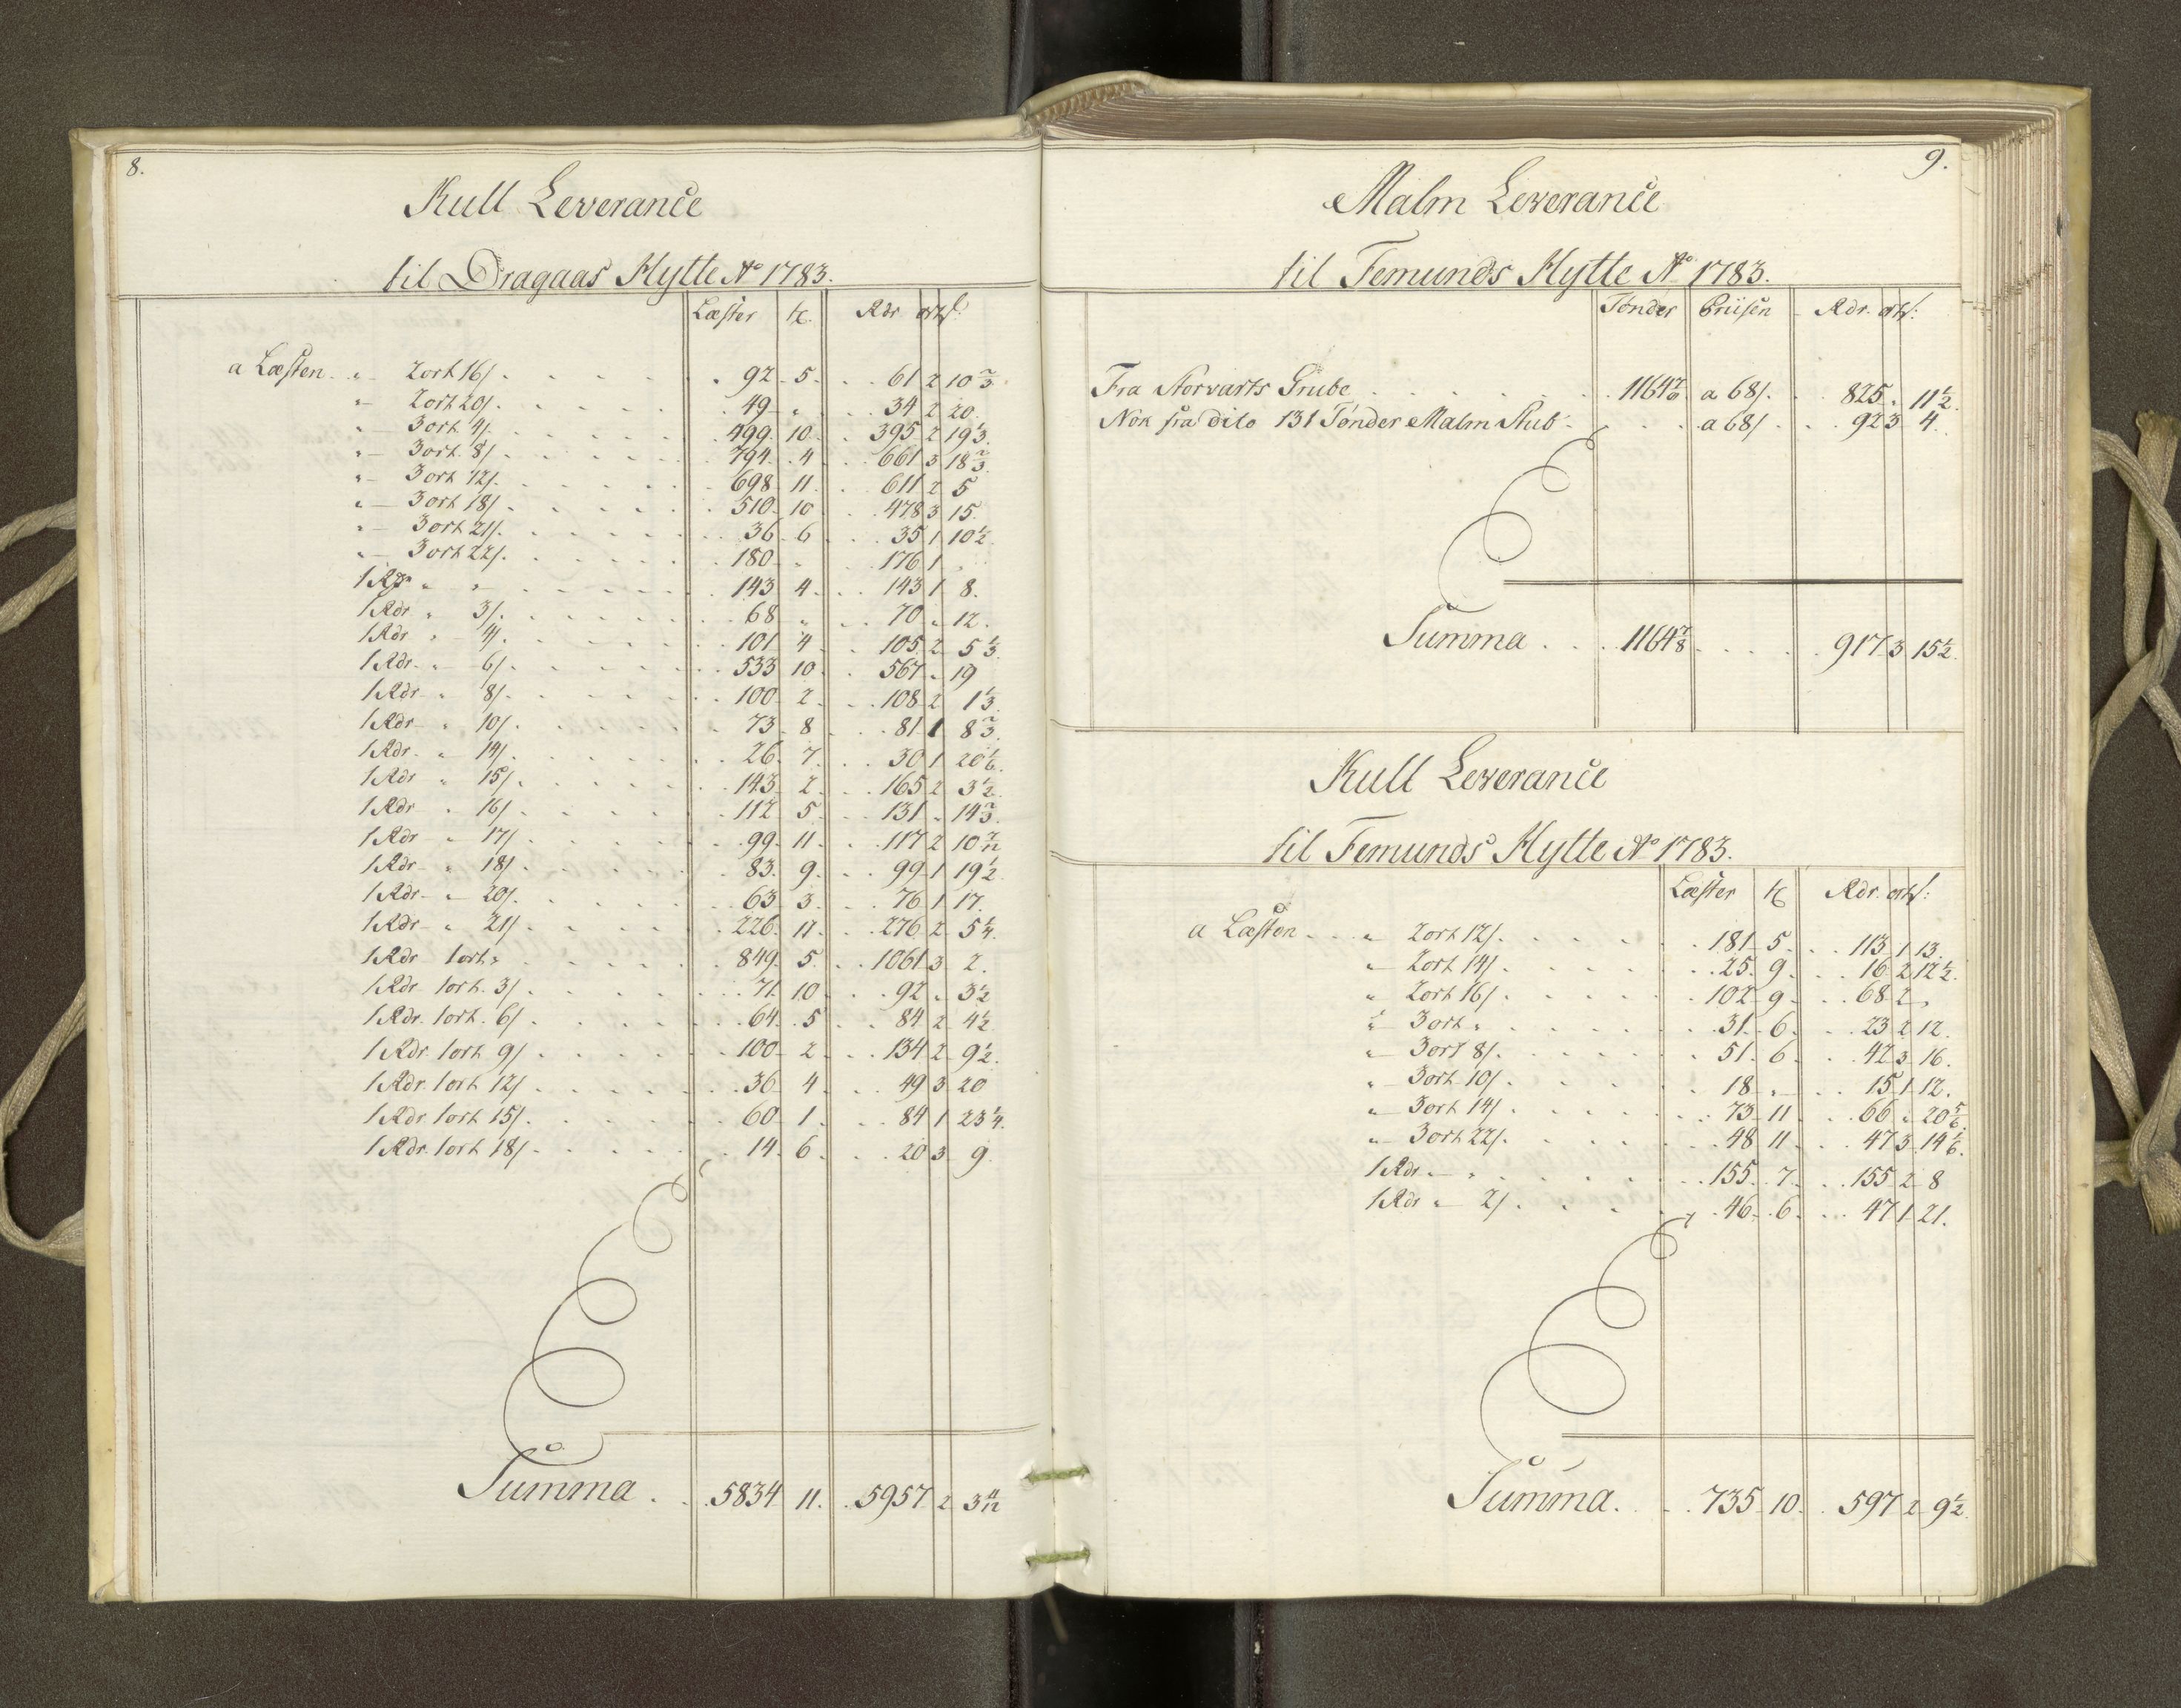 8.
Kull Leverance
til Dragaas Hytte Ao 1783.
Læster tr. Rdr ort s:
a Læsten " 2 ort 16 s. 92 5 61 2 10 2/3
" 2 ort 20 s. 49 " 34 2 20.
" 3 ort 4 s. 499 10 395 2 19 1/3.
" 3 ort 8 s. 794 4 661 3 18 2/3.
" 3 ort 12 s. 698 11 611 2 5
" 3 ort 18 s. 510 10 478 3 15.
" 3 ort 21 s. 36 6 35 1 10 1/2.
" 3 ort 22 s. 180 " 176 1 "
1 Rdr " " 143 4 143 1 8.
1 Rdr " 3 s. 68 " 70 " 12.
1 Rdr " 4 s. 101 4 105 2 5 1/3.
1 Rdr " 6 s. 533 10 567 " 19
1 Rdr " 8 s. 100 2 108 2 1 1/3.
1 Rdr " 10 s. 73 8 81 1 8 2/3.
1 Rdr " 14 s. 26 7 30 1 20 1/6.
1 Rdr " 15 s. 143 2 165 2 3 1/2.
1 Rdr " 16 s. 112 5 131 " 14 2/3.
1 Rdr " 17 s. 99 11 117 2 10 7/12
1 Rdr " 18 s. 83 9 99 1 19 1/2
1 Rdr " 20 s. 63 3 76 1 17.
1 Rdr " 21 s. 226 11 276 2 5 1/4.
1 Rdr 1 ort " 849 5 1061 3 2.
1 Rdr 1 ort 3 s. 71 10 92 " 3 1/2
1 Rdr 1 ort 6 s. 64 5 84 2 4 1/2
1 Rdr 1 ort 9 s. 100 2 134 2 9 1/2.
1 Rdr 1 ort 12 s. 36 4 49 3 20
1 Rdr 1 ort 15 s. 60 1 84 1 23 1/4.
1 Rdr 1 ort 18 s. 14 6 20 3 9
Summa 5834 11 5957 2 3 11/12
9.
Malm Leverance
til Femunds Hytte Ao 1783.
Tønder Priisen Rdr. ort s:
Fra Storvarts Grube 1164 7/8 a 68 s. 825 " 11 1/2.
Nok fra dito 131 Tønder Malm Stub a 68 s. 92 3 4.
Summa 1164 7/8 917 3 15 1/2.
Kull Leverance
til Femunds Hytte Ao 1783.
Læster tr Rdr. ort s:
a Læsten " 2 ort 12 s. 181 5 113 1 13.
" 2 ort 14 s. 25 9 16 2 12 1/2.
" 2 ort 16 s. 102 9 68 2 "
" 3 ort " 31 6 23 2 12.
" 3 ort 8 s. 51 6 42 3 16.
" 3 ort 10 s. 18 " 15 1 12.
" 3 ort 14 s. 73 11 66 " 20 5/6.
" 3 ort 22 s. 48 11 47 3 14 1/6.
1 Rdr " " 155 7 155 2 8
1 Rdr " 2 s. 46 6 47 1 21.
Summa 735 10 597 2 9 1/2.